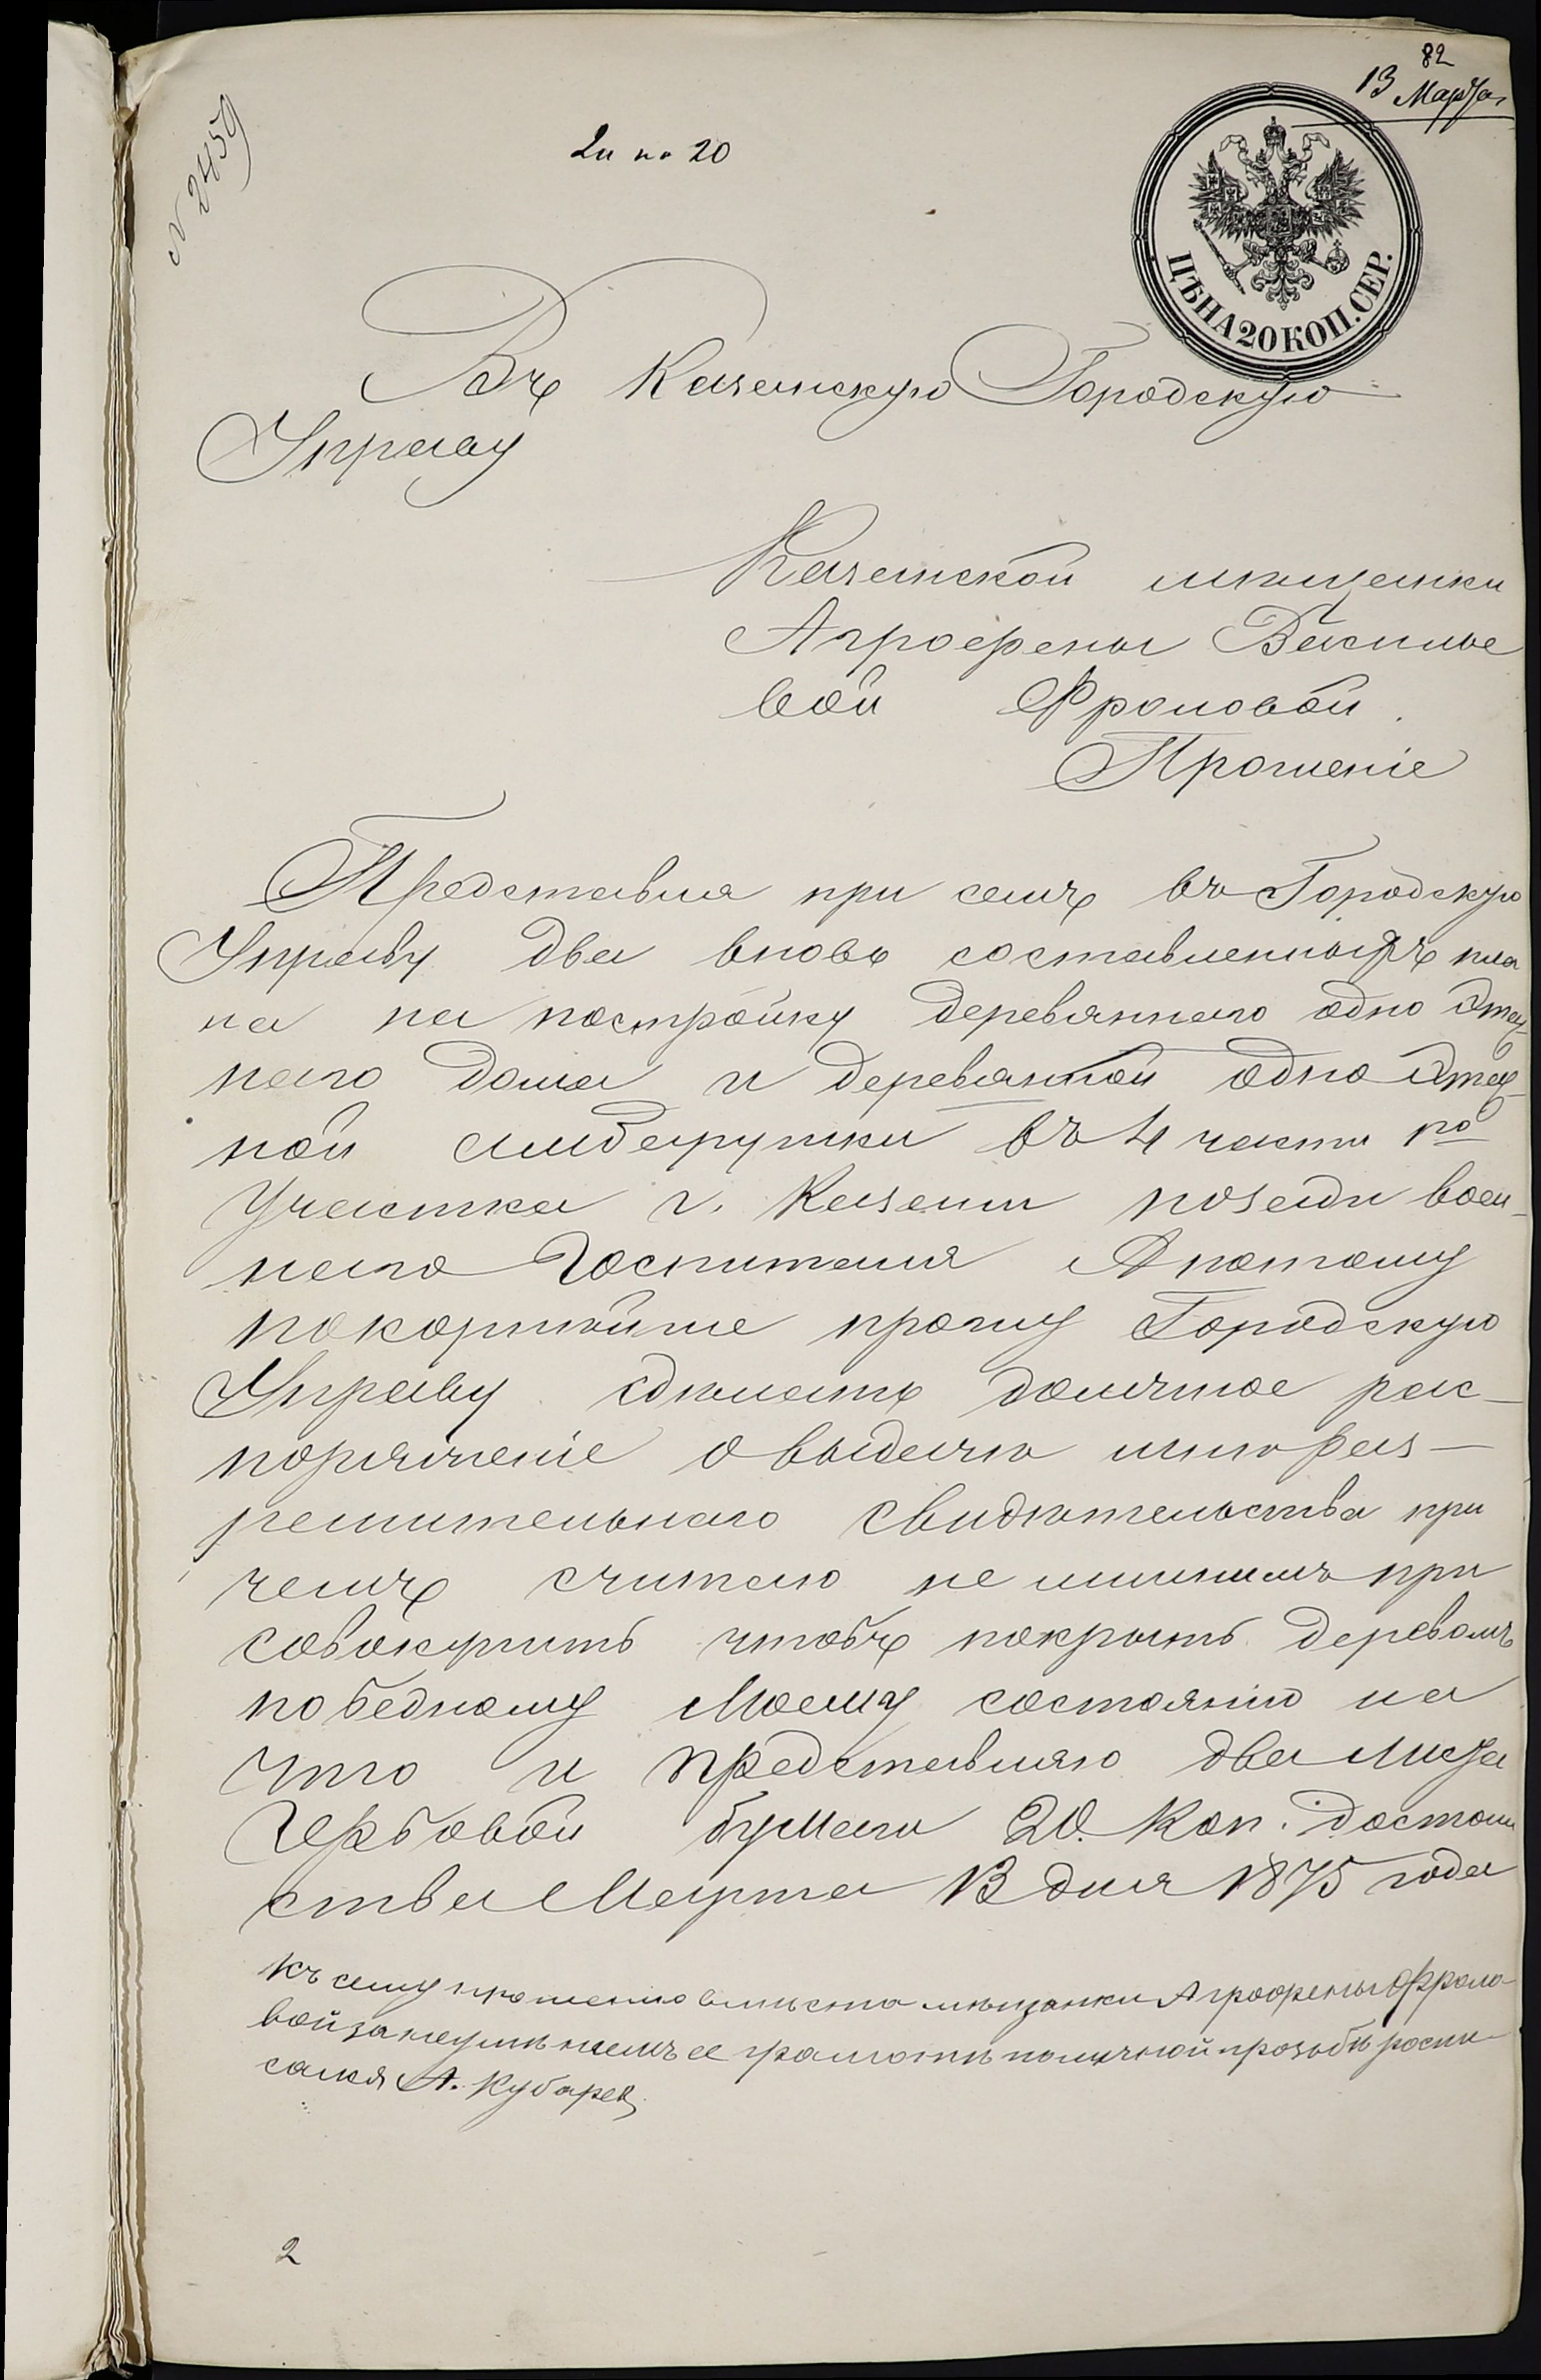 82
13 Марта
N 2459
2 л по 20
ЦѢНА 20 КОП. СЕР.
Въ Казанскую Городскую
Управу
Казанской мѣщанки
Аграфены Василье
вой Фроловой.
Прошеніе
Представляя при семъ въ Городскую
Управу два вновь составленныхъ пла
на на постройку деревяннаго одно этаж-
наго дома и деревянной одно этаж-
ной службы въ 4 части 1го
участка г. Казани позади воен-
наго Госпиталя А потому
покорнѣйше прошу Городскую
Управу сдѣлать должное рас-
поряженіе о выдачѣ мнѣ раз-
решительнаго свидѣтельства при
чемъ считаю не лишнимъ при
совокупить чтобъ покрыть деревомъ
по бедному моему состоянію на
что и представляю два листа
гербовой бумаги 20 коп. достоин
ства Марта 13 дня 1875 года
Къ сему прошенію вмѣсто мѣщанки Аграфены Фроло-
вой за неумѣніемъ ее грамотѣ по личной прозьбѣ роспи-
сался А. Кубарев
2